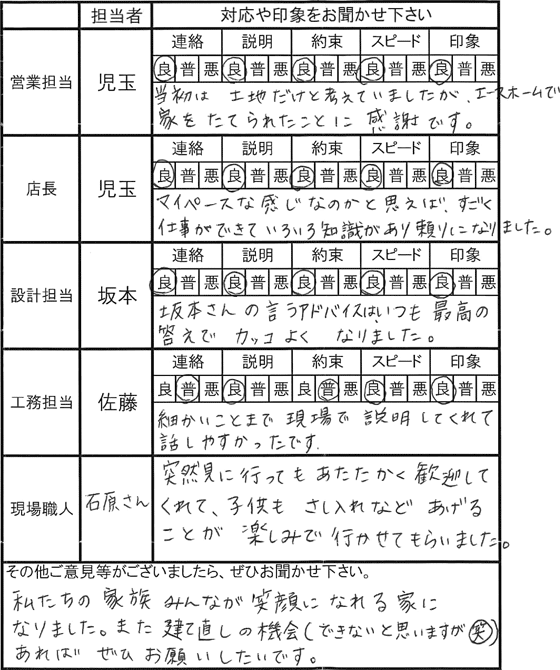 担当者 対応や印象をお聞かせ下さい
連絡 説明 約束 スピード 印象
営業担当 児玉 良 普 悪 良 普 悪 良 普 悪 良 普 悪 良 普 悪
当初は 土地だけと考えていましたが、エースホームで
家をたてられたことに 感謝です。
連絡 説明 約束 スピード 印象
店長 児玉 良 普 悪 良 普 悪 良 普 悪 良 普 悪 良 普 悪
マイペースな感じなのかと思えば、すごく
仕事ができていろいろ知識があり頼りになりました。
連絡 説明 約束 スピード 印象
設計担当 坂本 良 普 悪 良 普 悪 良 普 悪 良 普 悪 良 普 悪
坂本さんの言うアドバイスはいつも最高の
答えで カッコよく なりました。
連絡 説明 約束 スピード 印象
工務担当 佐藤 良 普 悪 良 普 悪 良 普 悪 良 普 悪 良 普 悪
細かいことまで 現場で 説明してくれて
話しやすかったです.
現場職人 石原さん
突然見に行ってもあたたかく歓迎して
くれて、子供も さし入れなど あげる
ことが 楽しみで行かせてもらいました。
その他ご意見等がございましたら、ぜひお聞かせ下さい。
私たちの 家族 みんなが笑顔になれる家に
なりました。また 建て直しの機会(できないと思いますが笑)
あれば ぜひ お願いしたいです。